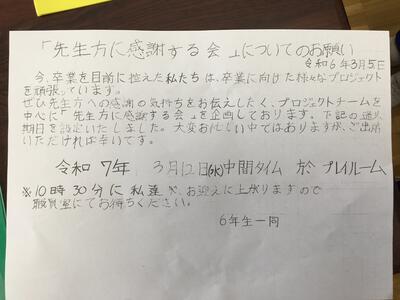 「先生方に感謝する会」についてのお願い
令和6年3月5日
今、卒業を目前に控えた私たちは、卒業に向けた様々なプロジェクト
を頑張っています。
ぜひ先生方への感謝の気持ちをお伝えしたく、プロジェクトチームを
中心に「先生方に感謝する会」を企画しております。下記の通り
期日を設定いたしました。大変お忙しい中ではありますが、ご出席
いただければ幸いです。
令和 7年 3月12日(水)中間タイム 於 プレイルーム
※10時30分に私達が、お迎えに上がりますので
職員室にてお待ちください。
6年生一同